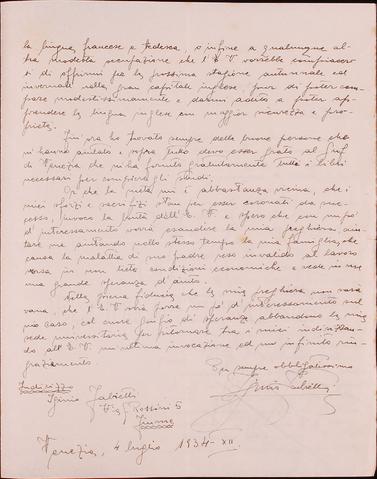 la lingua francese e tedesca, o infine a qualunque al-
tra modesta occupazione che l'E.V. vorrebbe compiacer
ti di offrirmi per la prossima stagione autunnale ed
invernale nella gran capitale inglese, pur di poter cam-
pare modestissimamente e darmi adito a poter ap-
prendere la lingua inglese con maggior sicurezza e pro-
fitto.
Fin'ora ho trovato sempre delle buone persone che
m'hanno aiutato e sopra tutto devo esser grato al
di Venezia che mi ha fornito gratuitamente tutti i libri
necessari per compiere gli studi.
Or che la meta mi è abbastanza vicina, che i
miei sforzi e sacrifizi stan per esser coronati da suc-
cesso, invoco la bontà dell'E.V. e spero che con un po'
d'interessamento vorrà esaudire la mia preghiera, aiu-
tare me aiutando nello stesso tempo la mia famiglia, che
causa la malattia di mio padre reso invalido al lavoro
versa in non liete condizioni economiche e vede in me
una grande speranza d'aiuto.
Nella piena fiducia che la mia preghiera non sarà
vana, che l'E.V. vorrà aver un po' d'interessamento sul
mio caso, col cuore gonfio di speranza abbandono la mia
sede universitaria per ritornare tra i miei indirizzan-
do all'E.V. un'ultima invocazione ed un infinito rin-
graziamento.
Suo sempre obbligatissimo
Indirizzo
Iginio
Via G. Rossini 5
Fiume
Venezia, 4 luglio 1934-XII